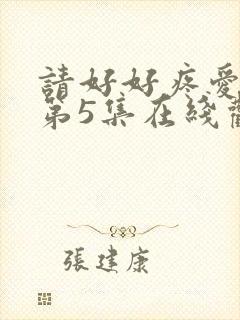 請好好疼愛
第5集在綫
張建康